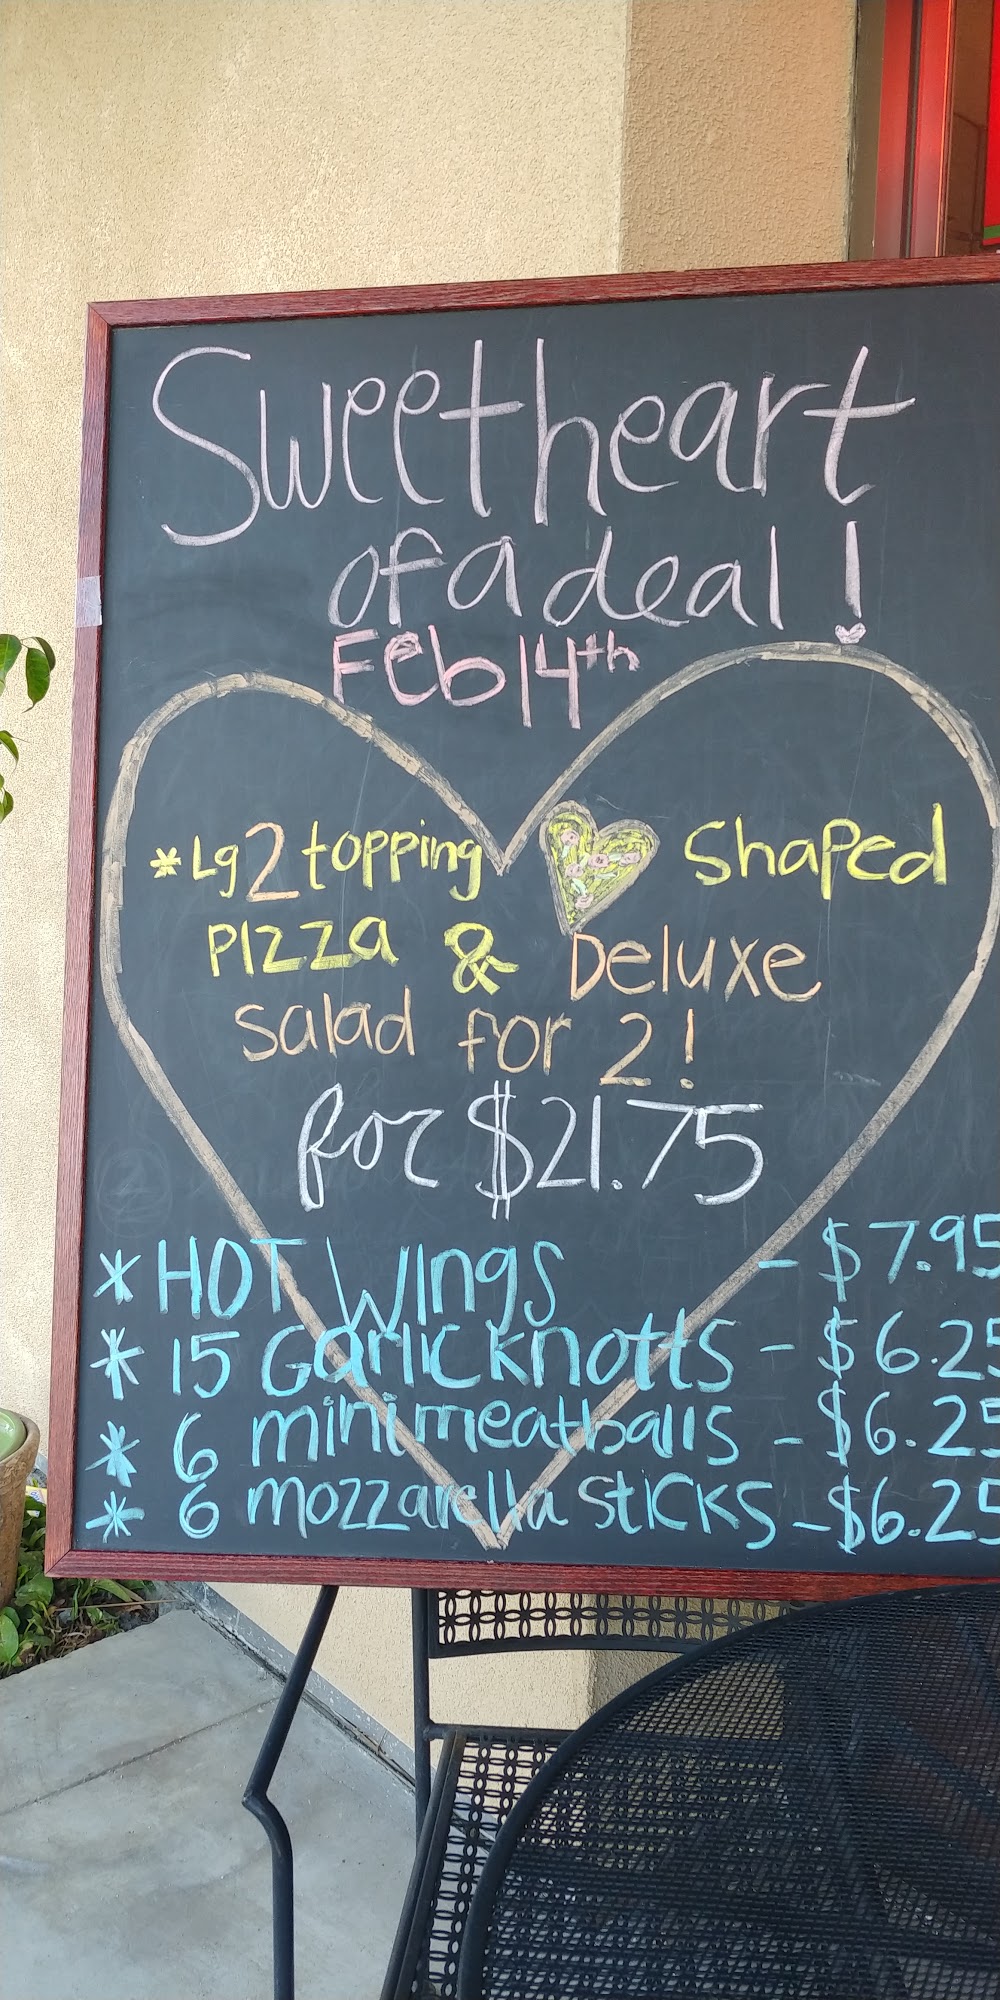 Sweetheart
of a deal!
Feb 14th
*Lg 2 topping shaped
Pizza & Deluxe
salad for 2!
for $21.75
* HOT Wings - $7.95
* 15 Garlic knotts - $6.25
* 6 mini meatballs - $6.25
* 6 mozzarella sticks - $6.25